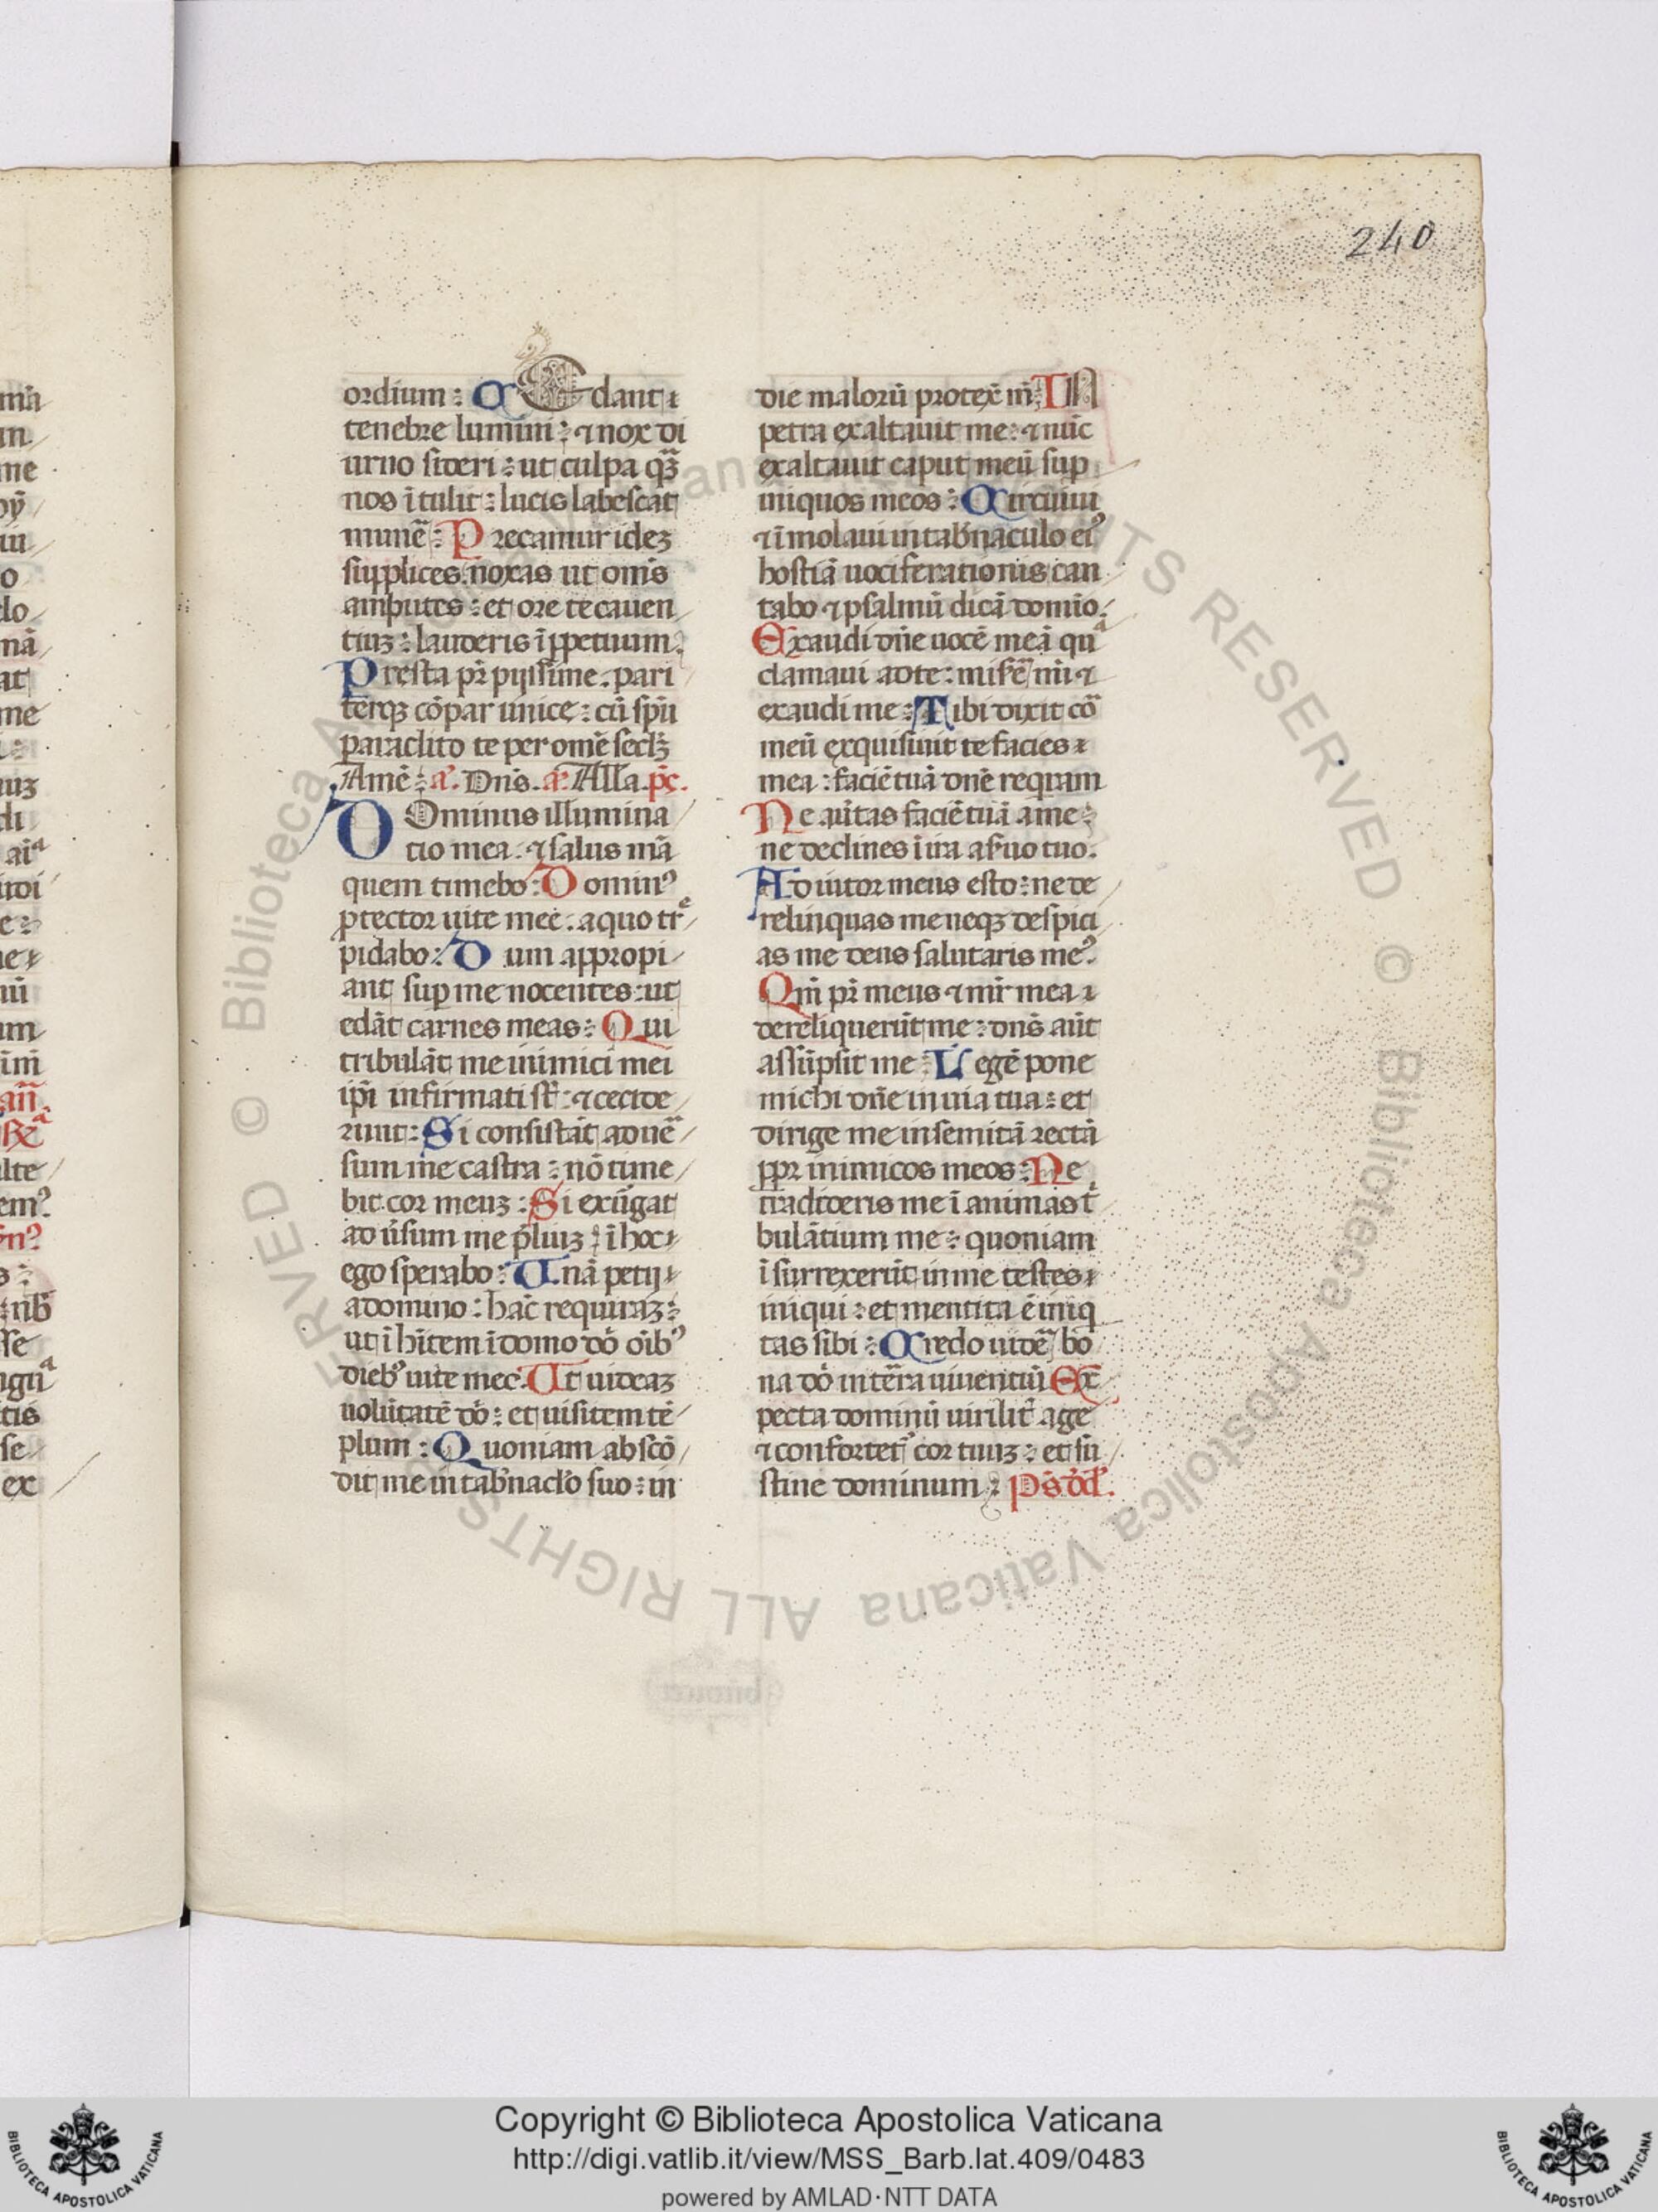 240
ordium : C Cedant
tenebre lumini : ⁊ nox di
urno sideri : ut culpa qꝫ̄
nos ītulit : lucis labescat
munē : Precamur idez
supplices noxas ut om̄s
amputes : et ore te canen
tiuz : lauderis ī ꝑpetuum.
Presta pr̄ pijssime . pari
terqꝫ cōpar unice : cū sp̄u
paraclito te per omē sec̄lꝫ
Amē : a. Dn̄s. a. All̄a. ps̄.
DOminus illumina
tio mea . ⁊ salus mā
quem timebo : Dominꝰ
ꝓtector uite mee . a quo tre
pidabo : Dum appropi
ant sup̱ me nocentes : ut
edāt carnes meas : Qui
tribulāt me inimici mei
ip̄i infirmati st̄ : ⁊ cecide
runt : Si consistāt aduē
sum me castra : nō time
bit cor meuz : Si exūgat
ad ūsum me p̄liuz : ī hoc
ego sperabo : Unā petij
a domino : hāc requiraz :
ut īhītem ī domo dō oībꝰ
diebꝰ uite mee. Ut uideaz
uolūtatē dō : et uisitem tē
plum : Quoniam abscō
dit me in tab̄nacl̄o suo : in
die malorū protex̄ m̄ IN
petra exaltauit me : ⁊ nūc
exaltauit caput meū sup̱
inimicos meos : Circuiui
⁊ īmolaui in tab̄naculo eiꝰ
hostiā uociferationis can
tabo ⁊ psalmū dicā domīo.
Exaudi dn̄e uocē meā qua
clamaui ad te : miser̄e m̄i ⁊
exaudi me : Tibi dixit cō
meū exquisiuit te facies
mea : faciē tuā dn̄e reqram
Ne au̇tas faciē tuā a me :
ne declines ī ira a s̄uo tuo.
Adiutor meus esto : ne de
relinquas me neqꝫ despici
as me deus salutaris meꝰ
Qm̄ pr̄ meus ⁊ mr̄ mea
dereliquerūt me : dn̄s aūt
assūpsit me : Legē pone
michi dn̄e in uia tua : et
dirige me in semitā rectā
ꝓpr̄ inimicos meos : Ne
tradideris me ī animas tⁱ
bulātium me : quoniam
ī surrexerūt in me testes
iniqui : et mentita ē iniq
tas sibi : Credo uidē bo
na dō in tēra uiuentiū Ex
pecta dominū uirilit̄ age
⁊ confortet̄ cor tuuz : et su
stine dominum : Ps̄ dd̄.
Copyright © Biblioteca Apostolica Vaticana
http://digi.vatlib.it/view/MSS_Barb.lat.409/0483
powered by AMLAD·NTT DATA
BIBLIOTECA APOSTOLICA VATICANA
BIBLIOTECA APOSTOLICA VATICANA
© Biblioteca Apostolica Vaticana ALL RIGHTS RESERVED © Biblioteca Apostolica Vaticana ALL RIGHTS RESERVED